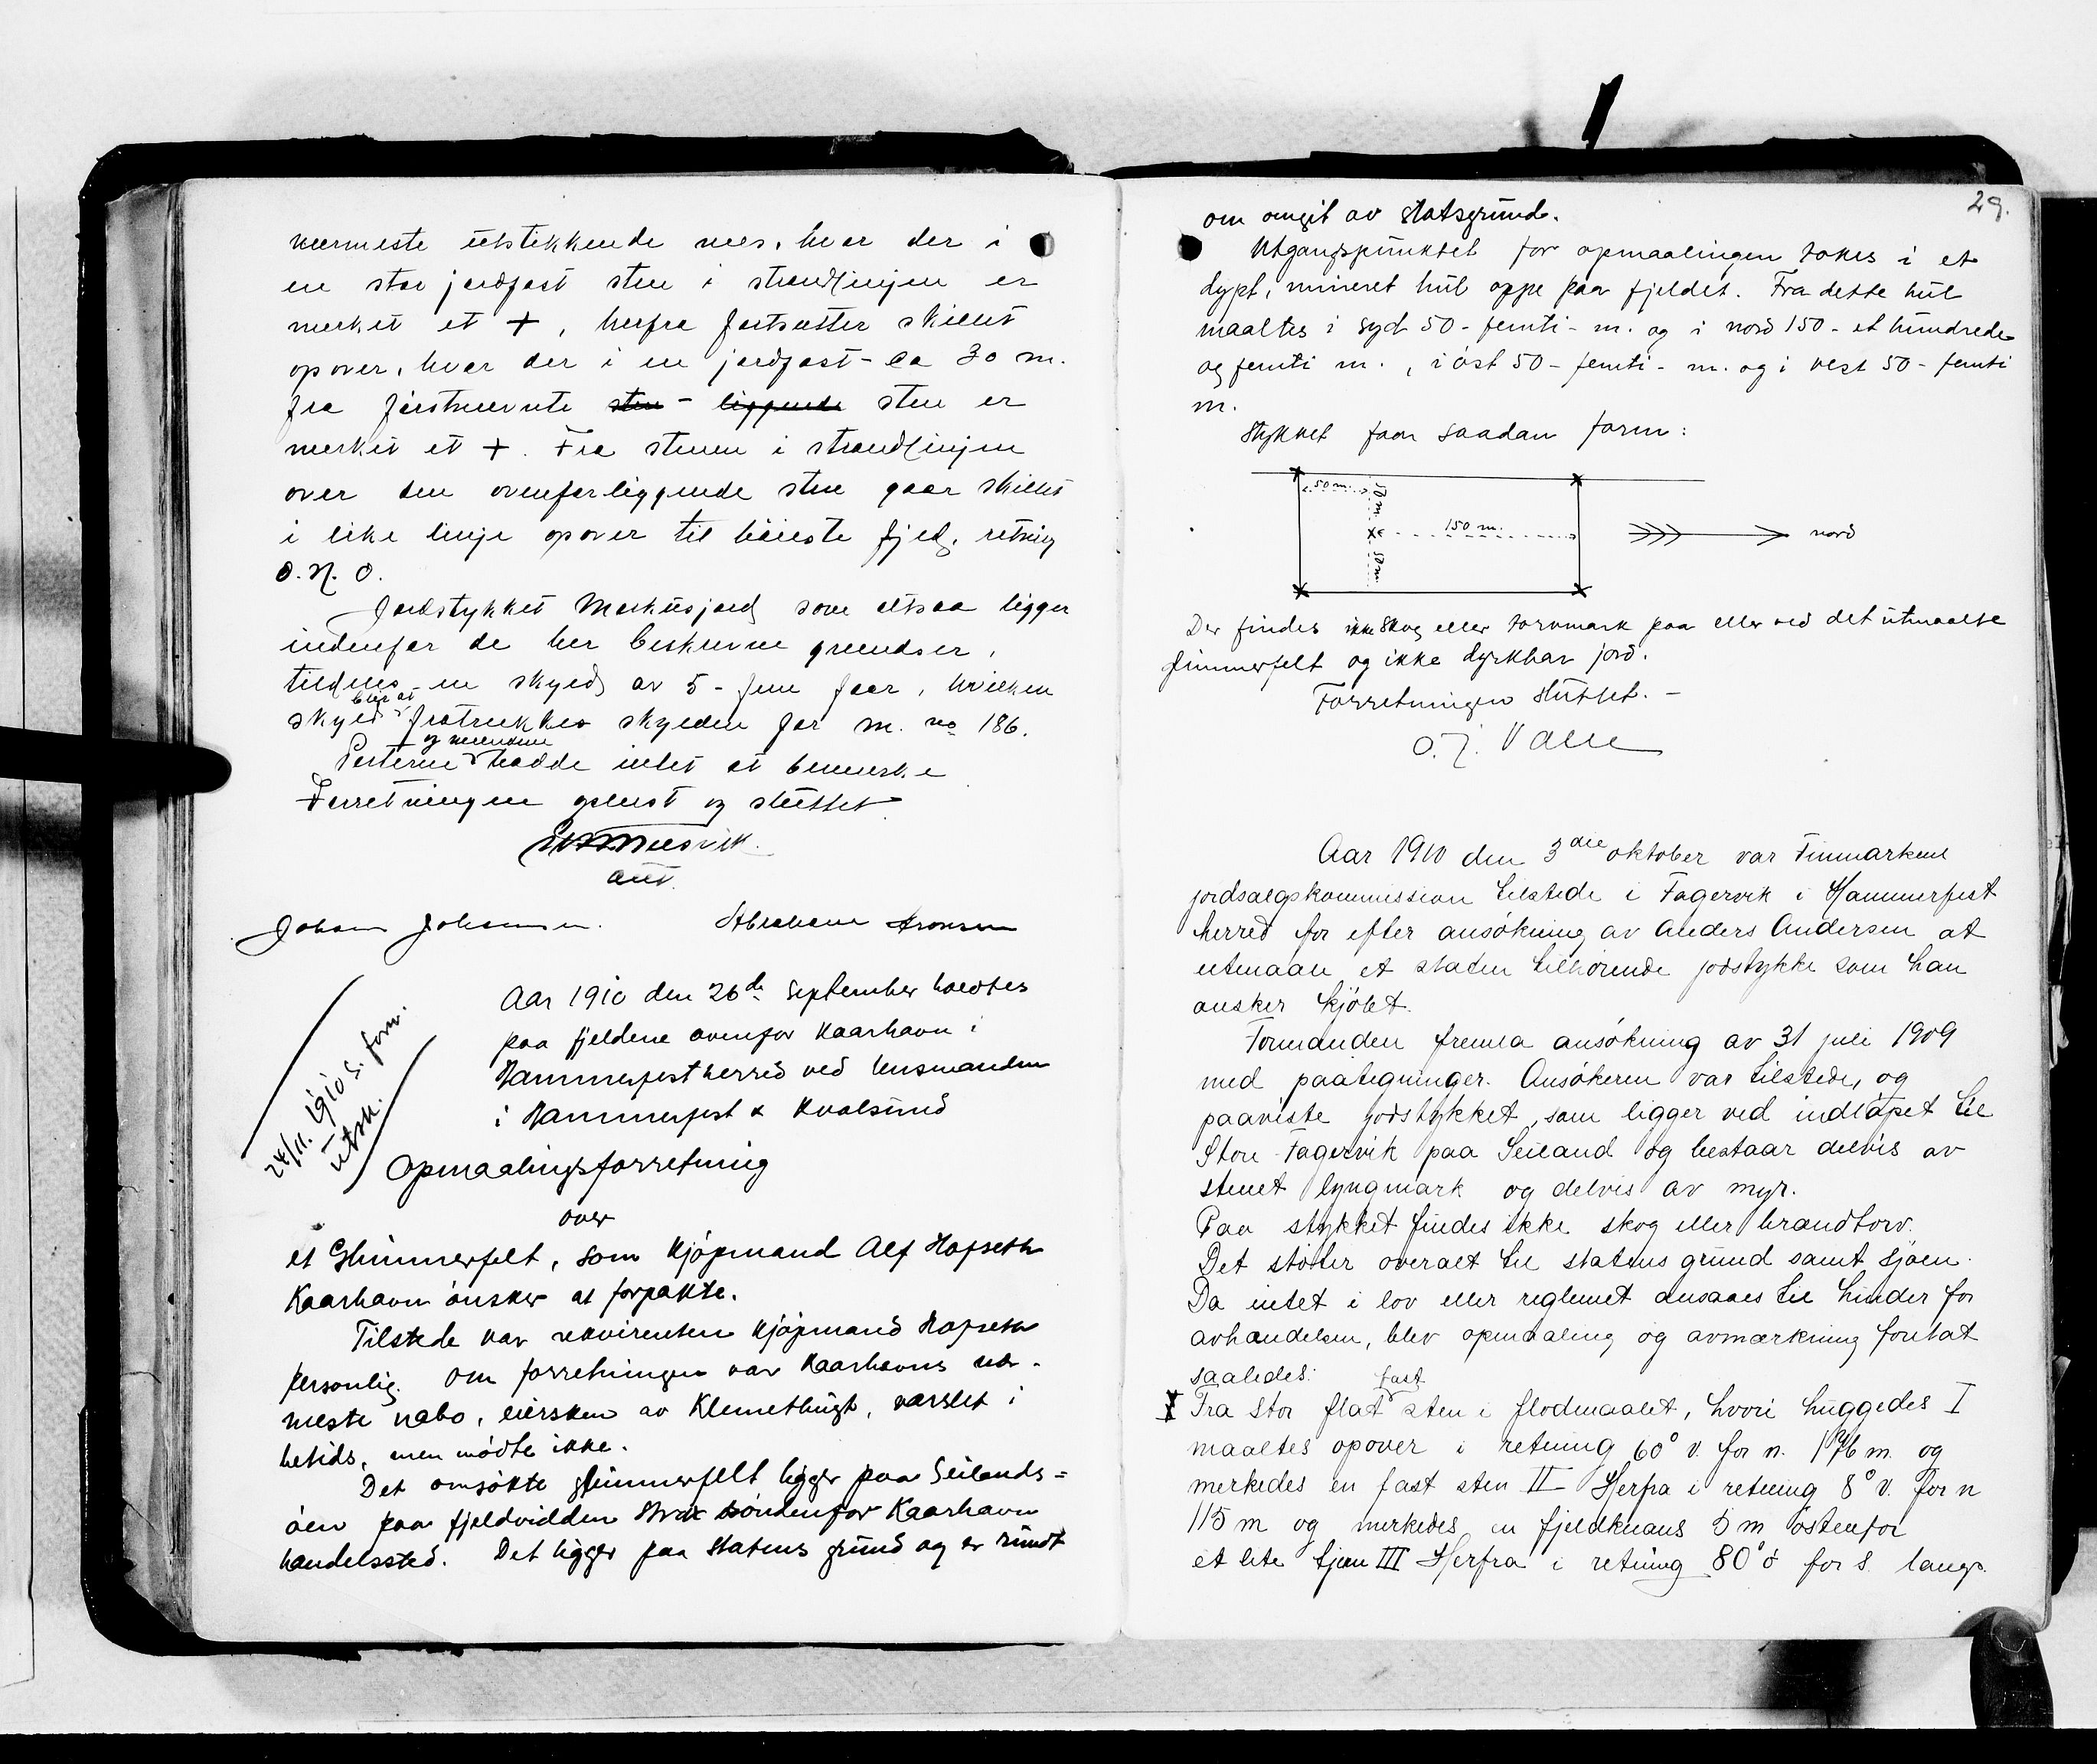 nærmeste utstikkende nes, hvor der i
en stor jordfast sten i strandlinjen er
merket et +, herfra fortsætter skillet
opover, hvor der i en jordfast - ca 30 m.
fra førstnævnte sten - liggende sten er
merket et +. Fra stenen i strandlinjen
over den ovenforliggende sten gaar skillet
i like linje opover til høieste fjeld, retning
O. N. O.
Jordstykket Markusjord som altsaa ligger
indenfor de her beskrevne grændser,
tildeles en skyld av 5 - fem øre, hvilken
blir at
skyld fratrækkes skylden for m. no 186.
og mændene
Parterne hadde intet at bemerke
Forretningen oplæst og sluttet
aut.
Johan Johansen. Abraham Aronsen
24/11. 1910 s. form.
utsk.
Aar 1910 den 26de september holdtes
paa fjeldene ovenfor Kaarhavn i
Hammerfest herred ved lensmanden
i Hammerfest & Kvalsund
Opmaalingsforretning
over
et Glimmerfelt, som Kjøpmand Alf Hopseth
Kaarhavn ønsker at forpakte.
Tilstede var rekvirenten kjøpmand Hopseth
personlig. Om forretningen var Kaarhavns nær-
meste nabo, eiersken av Klemethugt, varslet i
betids, men mødte ikke.
Det omsøkte glimmerfelt ligger paa Seilands=
øen paa fjeldvidden strax søndenfor Kaarhavn
handelssted. Det ligger paa statens grund og er rundt
29.
om omgit av statsgrund.
Utgangspunktet for opmaalingen tokes i et
dypt, mineret hul oppe paa fjeldet. Fra dette hul
maaltes i syd 50 - femti - m. og i nord 150 - et hundrede
og femti m., i øst 50 - femti - m. og i vest 50 - femti
m.
Stykket faar saadan form:
50 m.
50 m
150 m.
50 m
nord
Der findes ikke skog eller torvmark paa eller ved det utmaalte
glimmerfelt og ikke dyrkbar jord.
Forretningen sluttet. -
O. J. Valle
Aar 1910 den 3die oktober var Finmarkens
jordsalgskommission tilstede i Fagervik i Hammerfest
herred for efter ansøkning av Anders Andersen at
utmaale et staten tilhørende jordstykke som han
ønsker kjøbt.
Formanden fremla ansøkning av 31 juli 1909
med paategninger. Ansøkeren var tilstede, og
paaviste jordstykket, som ligger ved indløpet til
Store Fagervik paa Seiland og bestaar delvis av
stenet lyngmark og delvis av myr.
Paa stykket findes ikke skog eller brandtorv.
Det støter overalt til statens grund samt sjøen.
Da intet i lov eller reglement ansaaes til hinder for
avhændelsen, blev opmaaling og avmærkning foretat
saaledes:
fast
I Fra stor flat sten i flodmaalet, hvori huggedes I
maaltes opover i retning 60° v. for n. 176 m. og
merkedes en fast sten II Herfra i retning 8° v. for n
115 m og merkedes en fjeldknaus 5 m østenfor
et lite tjern III Herfra i retning 80° ø for s. langs